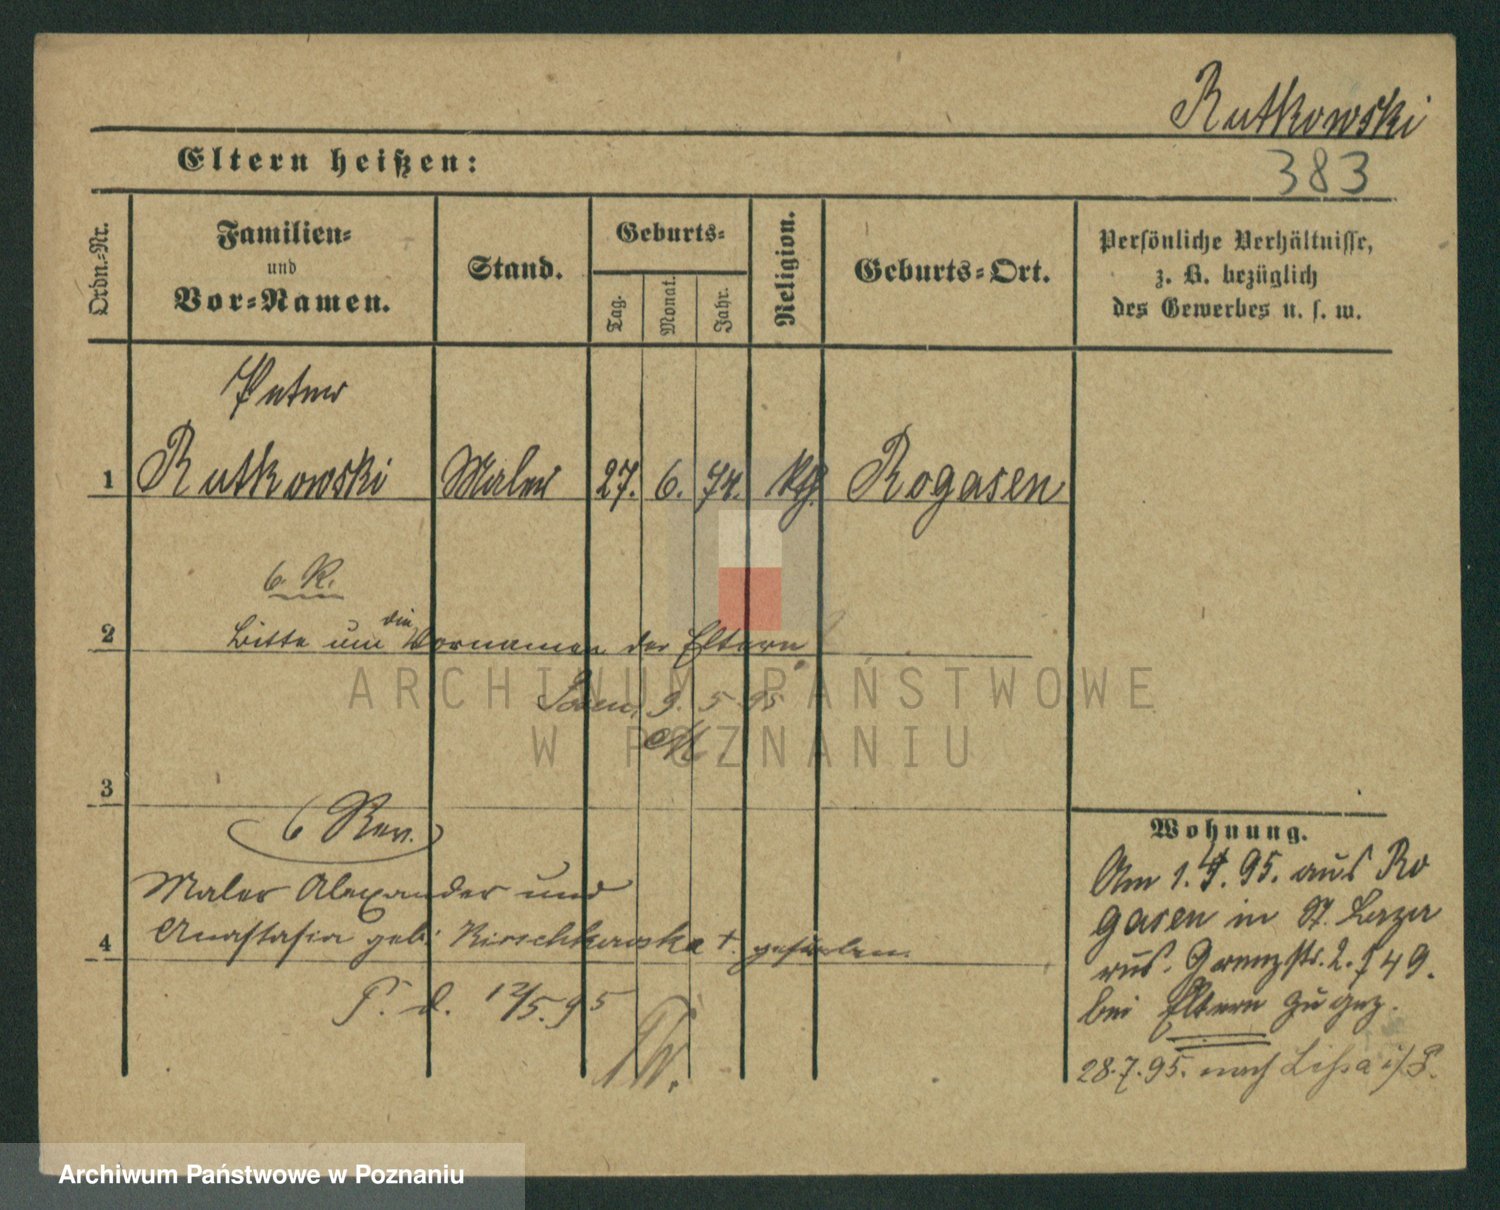 Rutkowski
383
Eltern heißen:
Ordn.-Nr.
Familien-
und
Vor-Namen.
Stand.
Geburts-
Tag.
Monat.
Jahr.
Religion.
Geburts-Ort.
Persönliche Verhältnisse,
z. B. bezüglich
des Gewerbes u. s. w.
Peter
1 Rutkowski Maler 27. 6. 74. kth. Rogasen
6. R.
die
2 Bitte um Vornamen der Eltern
Posen, 9. 5. 95
3
6 Rev.
Maler Alexander und
4 Anastasia geb. Kirschkowska †.
P. d. 12/5.95
Wohnung.
Am 1. 4. 95. aus Ro
gasen in St. Laza
rus. Grenzstr. 2. 49.
bei Eltern zugez.
28.7.95. nach Lissa i/P.
ARCHIWUM PAŃSTWOWE
W POZNANIU
Archiwum Państwowe w Poznaniu